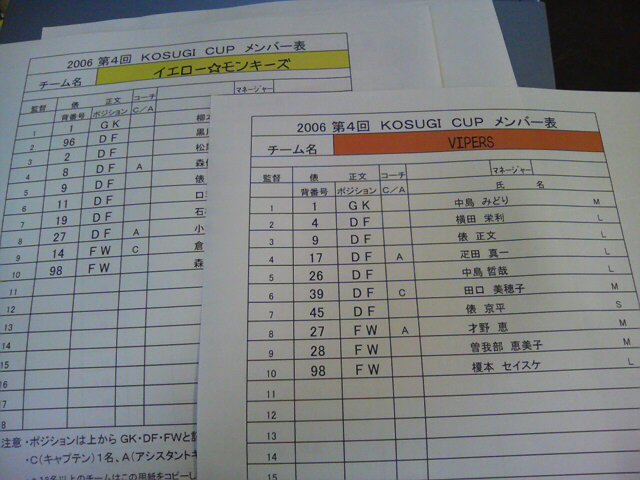 2006 第4回 KOSUGI CUP メンバー表
チーム名 イエロー☆モンキーズ
監督 俵 正文 コーチ マネージャー
背番号 ポジション C/A
1 1 GK
2 96 DF
3 2 DF
4 8 DF A
5 9 DF
6 11 DF
7 19 DF
8 27 DF A 小
9 14 FW C 倉
10 98 FW 森
11
12
13
注意 ・ポジションは上から GK・DF・FWと
・C(キャプテン)1名、A(アシスタント
2006 第4回 KOSUGI CUP メンバー表
チーム名 VIPERS
監督 俵 正文 コーチ マネージャー
背番号 ポジション C/A 氏 名
1 1 GK 中島 みどり M
2 4 DF 横田 栄利 L
3 9 DF 俵 正文 L
4 17 DF A 疋田 真一 L
5 26 DF 中島 哲哉 L
6 39 DF C 田口 美穂子 M
7 45 DF 俵 京平 S
8 27 FW A 才野 恵 M
9 28 FW 曽我部 恵美子 M
10 98 FW 榎本 セイスケ L
11
12
13
14
15